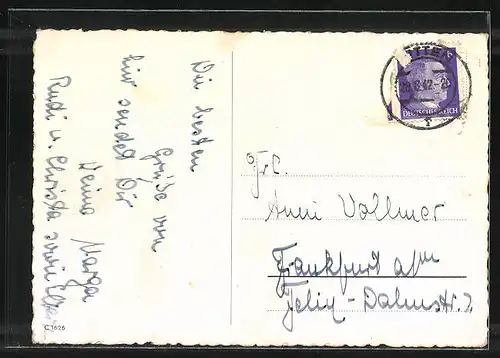 Die besten
Grüße von
hier sendet Dir
Deine Marga
Rudi u. Christa sowie
C 1626
DEUTSCHES REICH
Frl.
Anni Vollmer
Frankfurt a/m
Felix-Dahnstr. 2